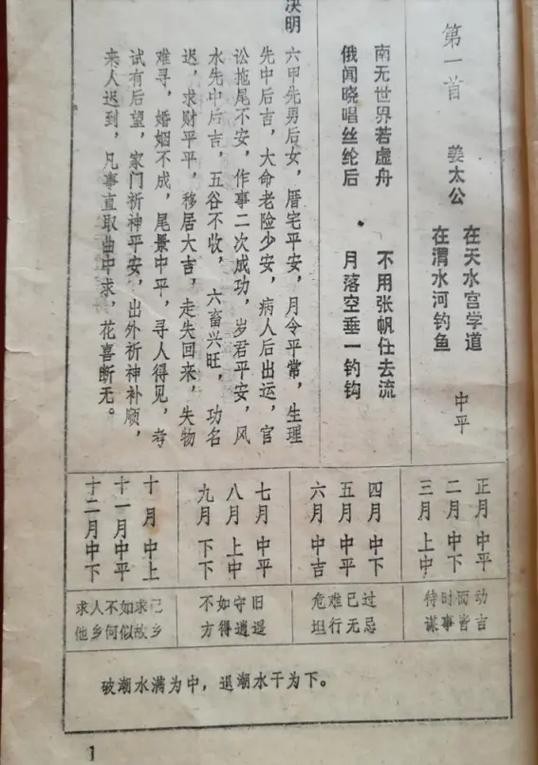 第一首
姜太公
在天水宫学道
在渭水河钓鱼
中平
南无世界若虚舟
不用张帆任去流
俄闻晓唱丝纶后
月落空垂一钓钩
决明
六甲先男后女，厝宅平安，月令平常，生理
先中后吉，大命老险少安，病人后出运，官
讼拖尾不安，作事二次成功，岁君平安，风
水先中后吉，五谷不收，六畜兴旺，功名
迟，求财平平，移居大吉，走失回来，失物
难寻，婚姻不成，尾景中平，寻人得见，考
试有后望，家门祈神平安，出外祈神补顺，
来人迟到，凡事直取曲中求，花喜断无。
正月 中平
二月 中下
三月 上中
四月 中下
五月 中平
六月 中吉
七月 中平
八月 上中
九月 下下
十月 中上
十一月中平
十二月中下
待时而动
谋事皆吉
危难已过
坦行无忌
不如守旧
方得逍遥
求人不如求己
他乡何似故乡
破潮水满为中，退潮水干为下。
1